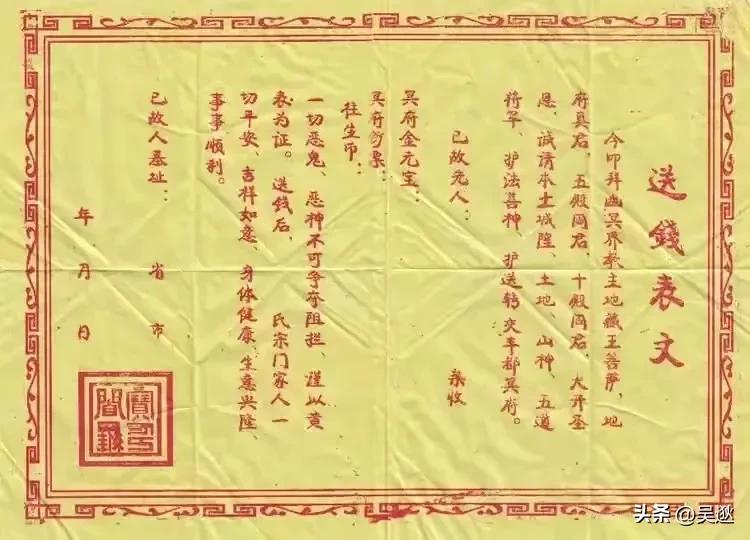 送錢表文
今叩拜幽冥界教主地藏王菩萨、地
府真君、五殿阎君、十殿阎君、大开圣
恩、诚请本土城隍、土地、山神、五道
将军、护法善神、护送转交丰都冥府。
已故先人： 亲收
冥府金元宝：
冥府钞票：
往生币：
一切恶鬼、恶神不可争夺阻拦、谨以黄
表为证。送钱后、 氏宗门家人一
切平安、吉祥如意、身体健康、生意兴隆、
事事顺利。
已故人墓址： 省 市
年 月 日
头条 @吴